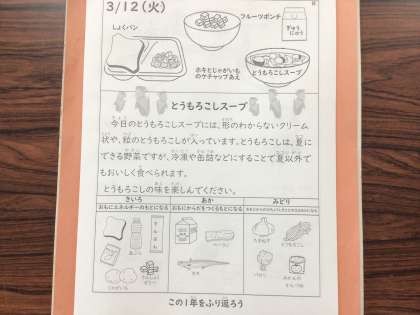 3/12(火)
しょくパン
フルーツポンチ
ぎゅうにゅう
ホキとじゃがいもの
ケチャップあえ
とうもろこしスープ
とうもろこしスープ
今日のとうもろこしスープには、形のわからないクリーム
状や、粒のとうもろこしが入っています。とうもろこしは、夏に
できる野菜ですが、冷凍や缶詰などにすることで夏以外で
もおいしく食べられます。
とうもろこしの味を楽しんでください。
きいろ あか みどり
おもにエネルギーのもとになる おもにからだをつくるもとになる
たまねぎ
とうもろこし
じゃがいも
パセリ
この1年をふり返ろう